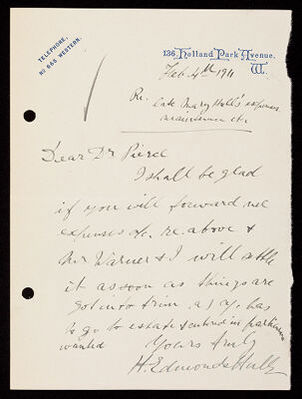 TELEPHONE,
No 665 WESTERN.
136, Holland Park Avenue.
W.
Feb. 4th 1911
Re. late Mary Hall's expenses
maintenance etc
Dear Dr Pierce
I shall be glad
if you will forward me
expenses etc. re above &
Mr Warner & I will settle
it as soon as things are
got into trim as has
to go to estate & entered in particulars
wanted Yours truly
H. Edmonds Hull